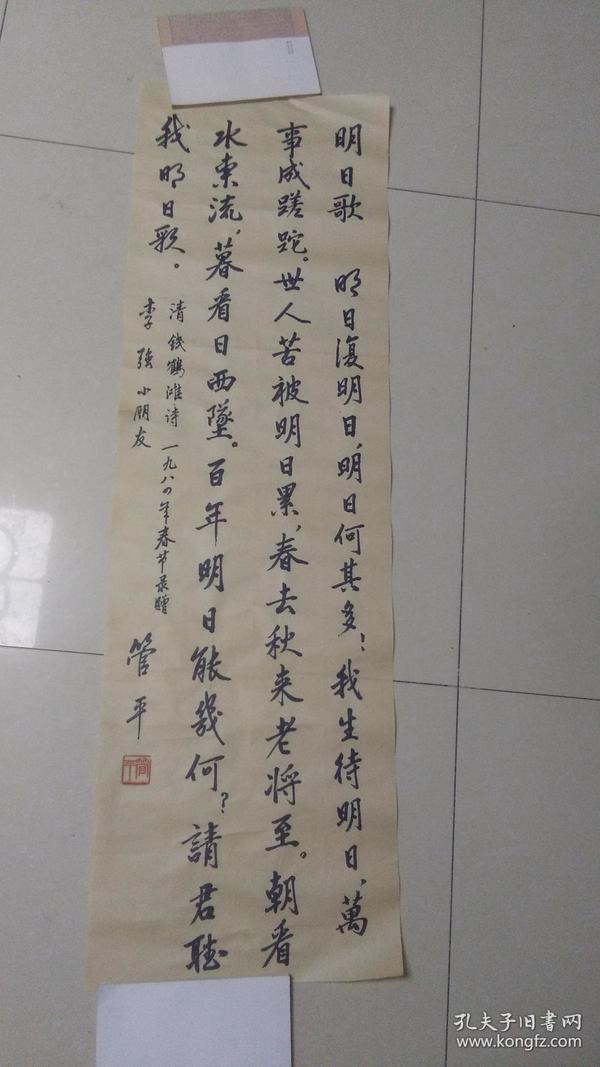 明日歌 明日復明日,明日何其多!我生待明日、萬
事成蹉跎。世人苦被明日累,春去秋来老將至。朝看
水東流,暮看日西墜。百年明日能幾何?請君聴
我明日歌。
清 钱鶴滩诗 一九八四年春节录贈
李強小朋友
管平
管平
孔夫子旧书网
www.kongfz.com